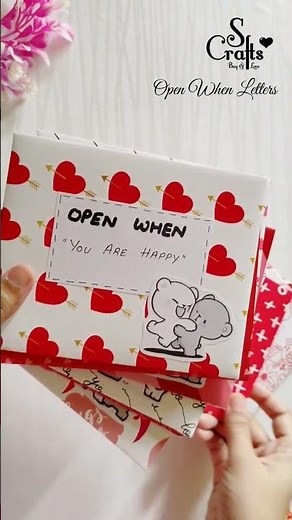 S
Crafts
Buy Of Love
Open When Letters
OPEN WHEN
"YOU ARE HAPPY"